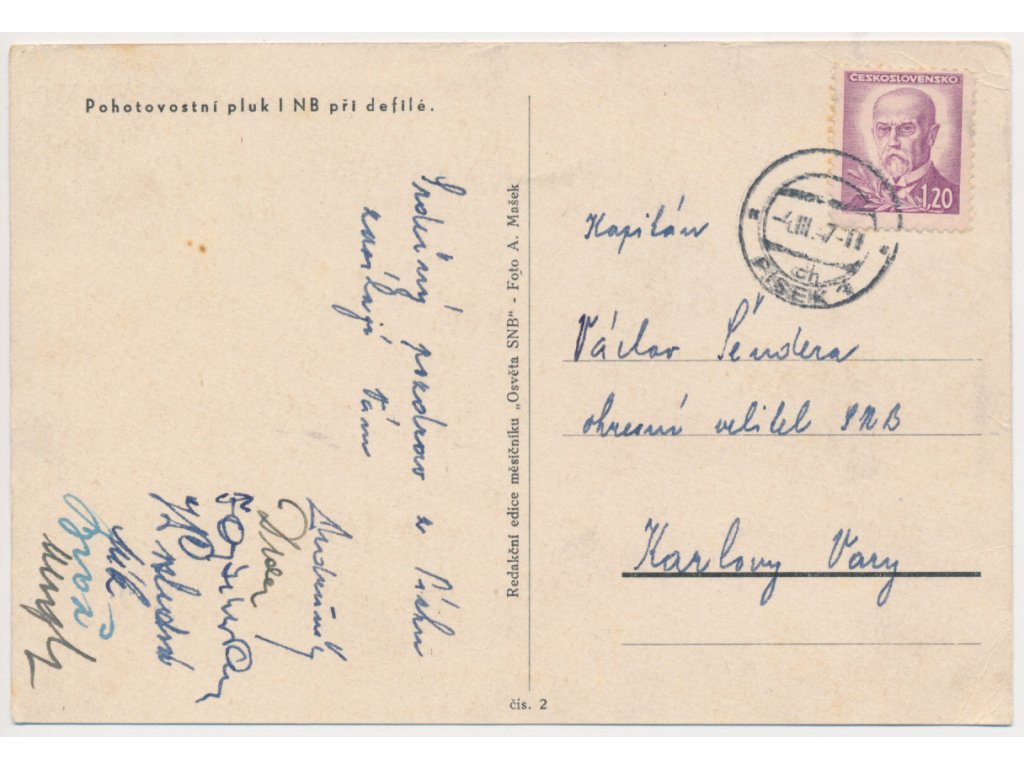 Pohotovostní pluk I NB při defilé.
ČESKOSLOVENSKO
1,20
-4.III.47-11
ch
PÍSEK 1
Srdečný pozdrav z Písku
zasílají Vám
Redakční edice měsíčníku „Osvěta SNB" - Foto A. Mašek
Kapitán
Václav Šendera
okresní velitel SNB
Karlovy Vary
čís. 2